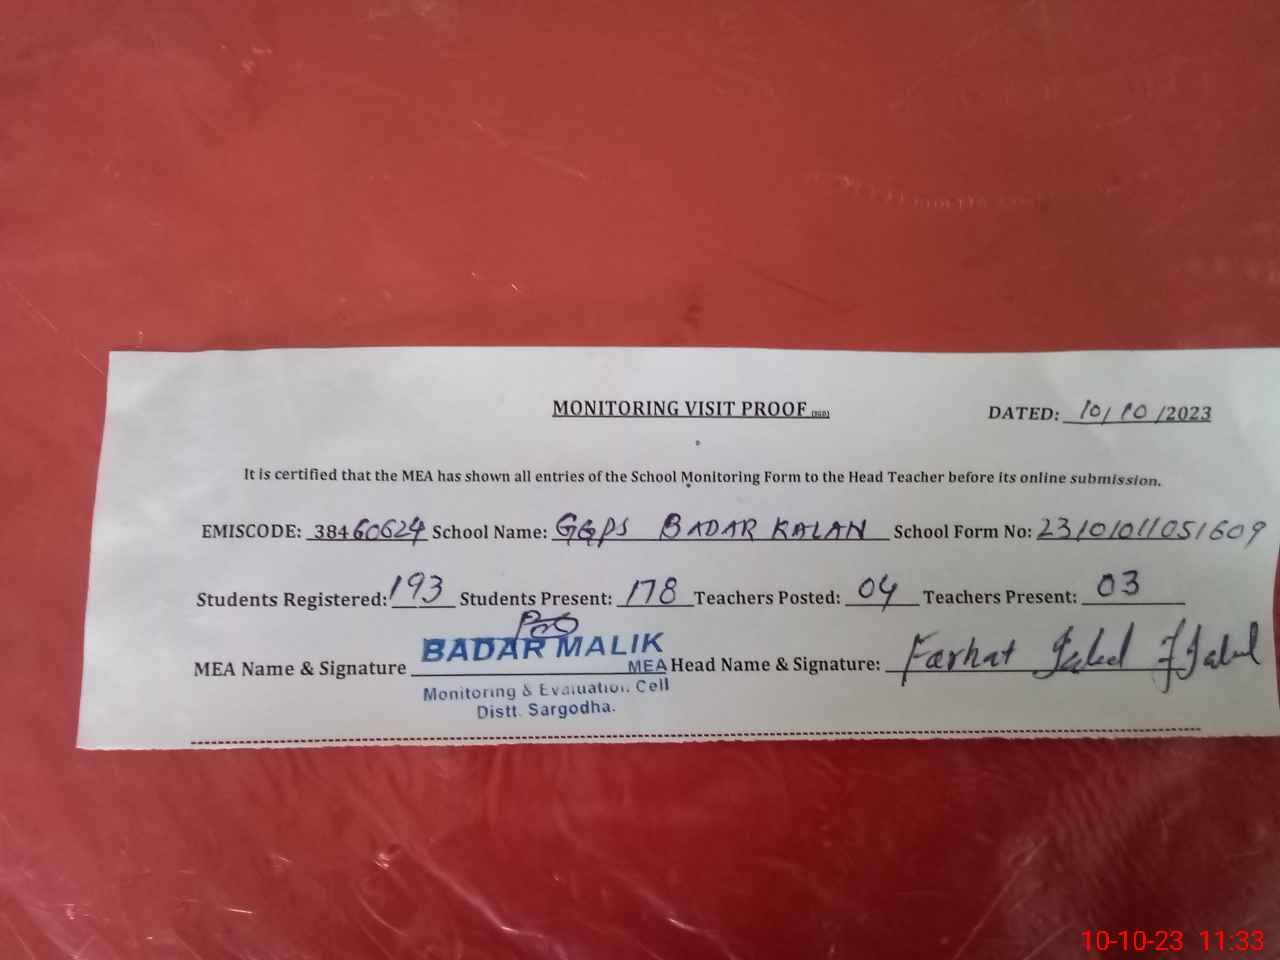 MONITORING VISIT PROOF (SGD) DATED: 10/10/2023
It is certified that the MEA has shown all entries of the School Monitoring Form to the Head Teacher before its online submission.
EMISCODE: 38460624 School Name: GGPS BADAR KALAN School Form No: 23101011051609
Students Registered: 193 Students Present: 178 Teachers Posted: 04 Teachers Present: 03
MEA Name & Signature BADAR MALIK Head Name & Signature: Farhat
MEA
Monitoring & Evaluation Cell
Distt. Sargodha.
10-10-23 11:33